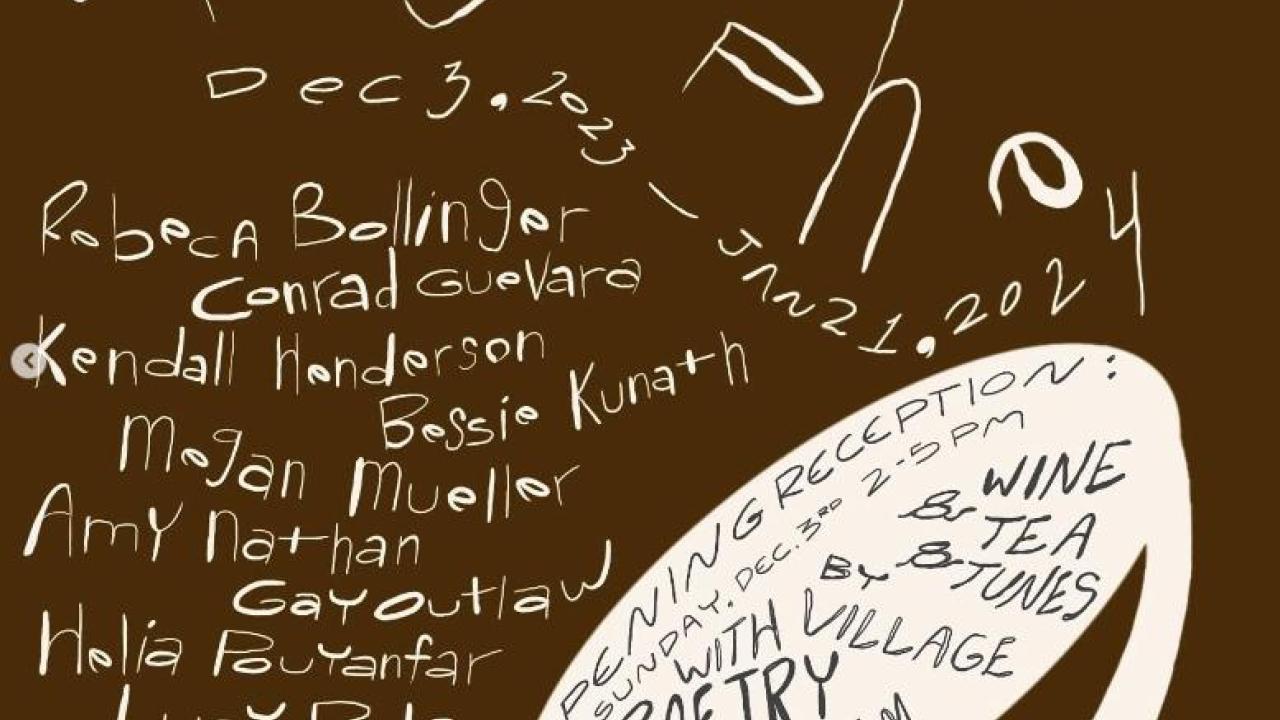 Dec 3, 2023 – Jan 21, 2024
Rebeca Bollinger
Conrad Guevara
Kendall Henderson
Bessie Kunath
Megan Mueller
Amy Nathan
Gay Outlaw
Helia Pouyanfar
OPENING RECEPTION:
SUNDAY. DEC. 3RD 2-5 PM
WINE
& TEA
& TUNES
BY VILLAGE
WITH
POETRY